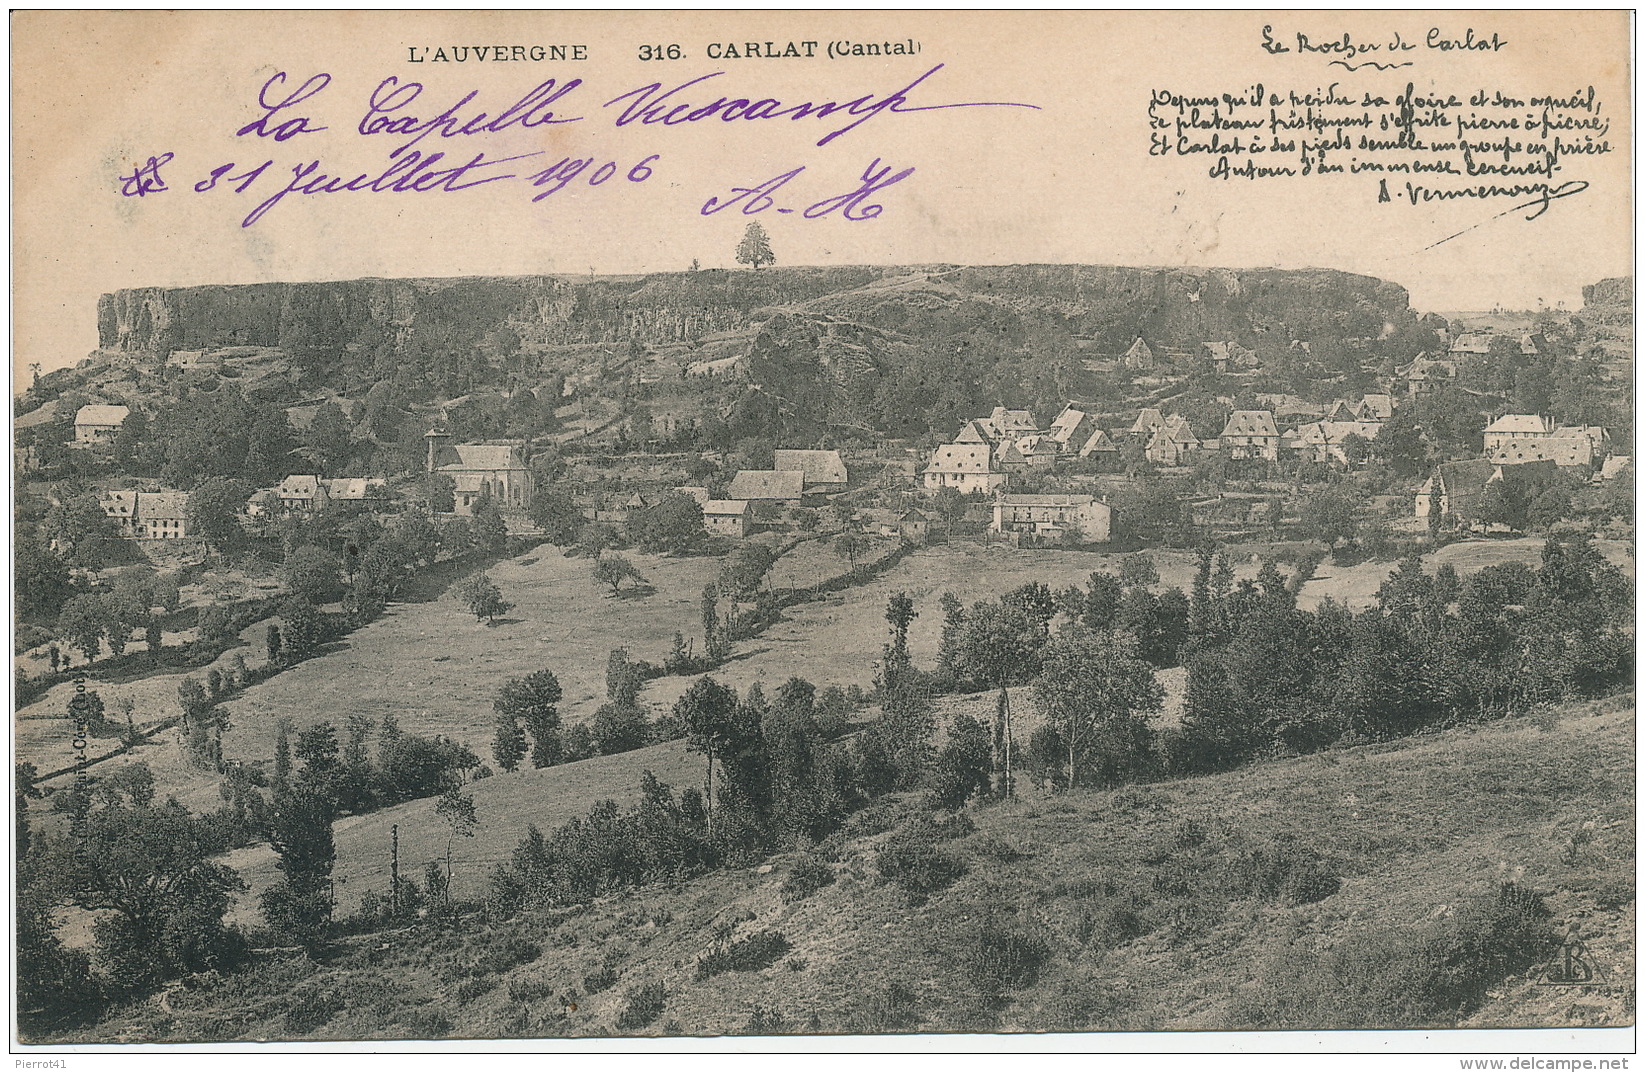 L'AUVERGNE 316. CARLAT (Cantal)
Le Rocher de Carlat
Depuis qu'il a perdu sa gloire et son orgueil,
Le plateau tristement s'effrite pierre à pierre;
Et Carlat à ses pieds semble un groupe en prière
Autour d'un immense cercueil-
A. Vermenouze
La Capelle Viescamp
le 31 Juillet 1906
A-H
B
Pierrot41
www.delcampe.net